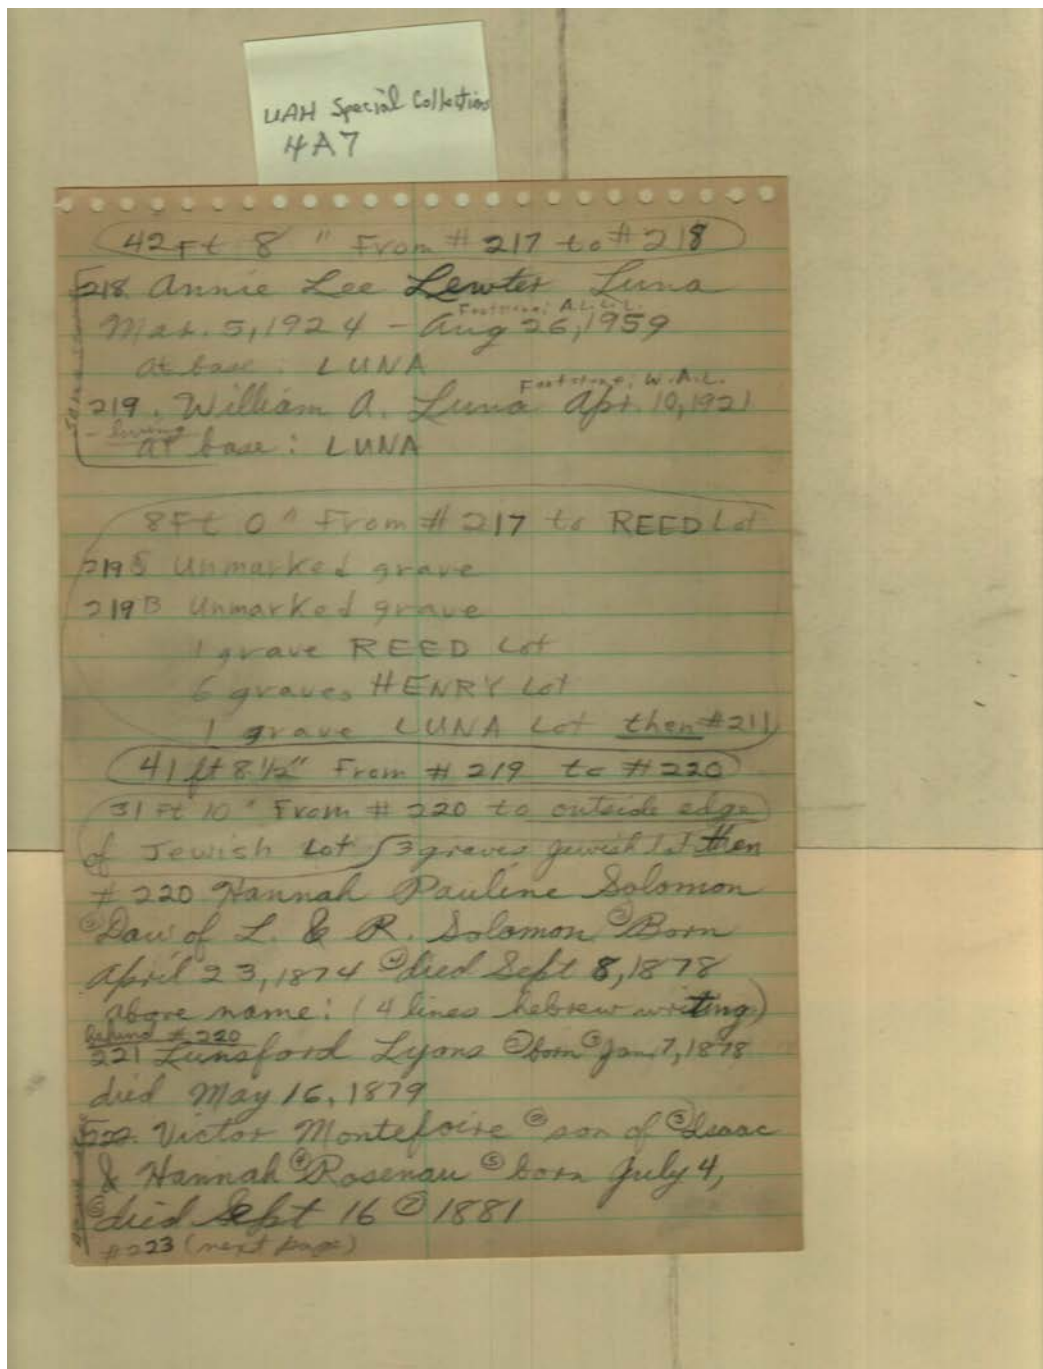 UAH Special Collections
4A7
42 Ft 8 " From # 217 to # 218
218. Annie Lee Lewter Luna
Footstone: A.L.L.L.
Mar. 5, 1924 - Aug 26, 1959
at base: LUNA
Footstone: W.A.L.
219. William A. Luna Apr. 10, 1921
- living
at base: LUNA
8 Ft 0 " From # 217 to REED Lot
219 Unmarked grave
219 B Unmarked grave
1 grave REED Lot
6 graves HENRY Lot
1 grave LUNA Lot then #211
41 ft 8 1/2" From # 219 to # 220
31 Ft 10 " From # 220 to outside edge
of Jewish Lot 3 graves Jewish lot then
# 220 Hannah Pauline Solomon
Dau of L. & R. Solomon ③ Born
April 23, 1874 ④ died Sept 8, 1878
above name: (4 lines hebrew writing)
behind # 220
221 Lunsford Lyons ② born ③ Jan. 7, 1878
died May 16, 1879
222. Victor Montefoire ② son of ③ Isaac
& Hannah ④ Rosenau ⑤ born July 4,
⑥ died Sept 16 ⑦ 1881
#223 (next page)